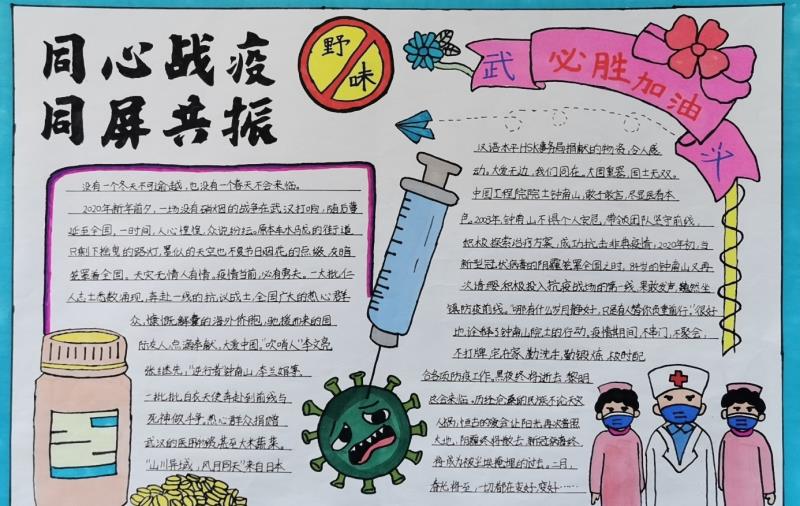 同心战疫
同屏共振
野味
武
必胜加油
汉
没有一个冬天不可逾越,也没有一个春天不会来临。
2020年新年前夕,一场没有硝烟的战争在武汉打响,随后蔓
延至全国,一时间,人心惶惶,众说纷纭。原本车水马龙的街道
只剩下摇曳的路灯,墨似的天空也不复节日烟花的点缀,灰暗
笼罩着全国。天灾无情人有情。疫情当前,必有勇夫。一大批仁
人志士悉数涌现,奔赴一线的抗议战士,全国广大的热心群
众,慷慨解囊的海外侨胞,驰援而来的国
际友人,点滴奉献,大爱中国,“吹哨人”李文亮
“逆行者”钟南山,李兰娟等,
一批批白衣天使奔赴到前线与
死神做斗争,热心群众捐赠
武汉的医用物资甚至大米蔬菜。
“山川异域,风月同天”来自日本
汉语水平HSK事务局捐献的物资,令人感
动。大爱无边,我们同在。大国重器,国士无双。
中国工程院院士钟南山,敢于敢言,尽显医者本
色。2003年,钟南山不得个人安危,带领团队坚守前线,
积极探索治疗方案,成功抗击非典疫情;2020年初,当
新型冠状病毒的阴霾笼罩全国之时,84岁的钟南山又再
次请缨,积极投入抗疫战场的第一线,果敢发声,巍然坐
镇防疫前线。“哪有什么岁月静好,只是有人替你负重前行”。很好
地诠释了钟南山院士的行动。疫情期间,不串门,不聚会,
不打牌,宅在家,勤洗手,勤锻炼,极时配
合各项防疫工作。黑夜终将逝去,黎明
必会来临。历经沧桑的民族不会灭
大地,阴霾终将散去,新冠病毒终
将成为被尘埃掩埋的过去。二月,
春长将至,一切都在变好,变好……